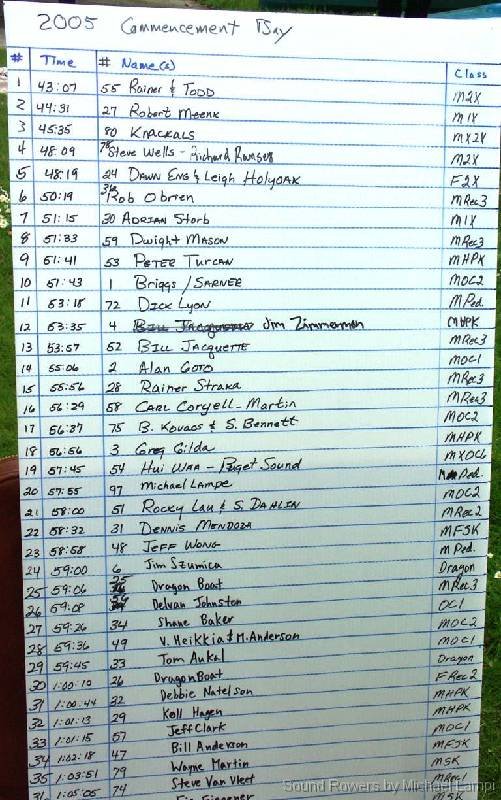 2005 Commencement Bay
# Time # Name(s) Class
1 43:07 55 Rainer & TODD M2X
2 44:31 27 Robert Meenk M1X
3 45:35 80 KNACKALS MX2X
4 48:09 78 Steve Wells - Richard Ransen M2X
5 48:19 24 DAWN ENS & Leigh HOLYOAK F2X
6 50:19 36 Rob Obrien MRec3
7 51:15 30 ADRIAN Storb M1X
8 51:33 59 Dwight MASON MRec3
9 51:41 53 PETER TURCAN MHPK
10 51:43 1 Briggs / SARVER MOC2
11 53:18 72 DICK LYON MPed.
12 53:35 4 Jim Zimmerman MHPK
13 53:57 52 BILL JACQUETTE MRec3
14 55:06 2 Alan GOTO MOC1
15 55:56 28 Rainer Straka MRec3
16 56:29 58 CARL Coryell-Martin MRec3
17 56:37 75 B. Kovacs & S. Bennett MOC2
18 56:56 3 Greg Gilda MHPK
19 57:45 54 Hui WAA - Puget Sound MXOC6
20 57:55 97 Michael Lampe Ped
21 58:00 51 ROCKY Lau & S. DAHLIN MOC2
22 58:32 31 DENNIS MENDOZA MRec2
23 58:58 48 JEFF WONG MFSK
24 59:00 6 Jim SZUMICA M Ped.
25 59:06 25 Dragon Boat Dragon
26 59:08 Delvan Johnston MRec3
27 59:26 34 Shane Baker OC1
28 59:36 49 V. Heikkia & M. Anderson MOC2
29 59:45 33 Tom Aukal MOC1
30 1:00:10 26 Dragon Boat Dragon
31 1:00:44 32 Debbie Natelson FRec2
32 1:01:13 29 Kell Hagen MHPK
33 1:01:15 57 Jeff Clark MHPK
34 1:02:18 47 Bill Anderson MOC1
35 1:03:51 79 Wayne Martin MFSK
1:05:05 74 Steve Van Vleet MSK
MRec1
Sound Rowers by Michael Lampi